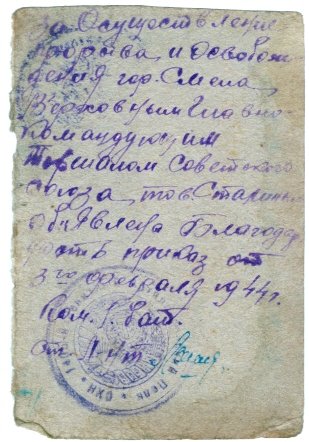 За осуществление
прорыва, и освобож
дения гор. Смела,
Верховным Главно
командующим
Маршалом Советского
Союза, тов Сталиным
объявлена благодар
ность приказ от
3го февраля 1944г.
Ком.